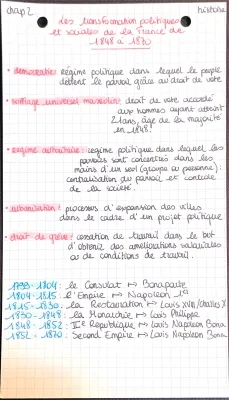 chap 2
histoire
des transformation politiques
et sociales de la France de
1848 à 1870
• democratie: régime politique dans lequel le peuple
détient le pouvoir grâce au droit de vote
• suffrage universel masculin: droit de vote accordé
aux hommes ayant atteint
21ans, âge de la majorité
en 1848.
• regime autoritaire: regime politique dans lequel les
pouvoirs sont concentrés dans les
mains d'un seul (groupe ou personne):
centralisation du pouvoir et controle
de la société.
• urbanisation: processus d'expansion des villes
dans le cadre d'un projet politique
• droit de grève: cessation de travail dans le but
d'obtenir des améliorations salariales
ou de conditions de travail.
1799-1804: le Consulat ↦ Bonaparte
1804-1815: l'Empire ↦ Napoleon 1er
1815-1830: la Restauration ↦ Louis XVIII/charles X
1830-1848: la Monarchie ↦ Louis Philippe
1848-1852: IIe Republique ↦ Louis Napoleon Bona
1852-1870: Second Empire ↦ Louis Napoleon Bona